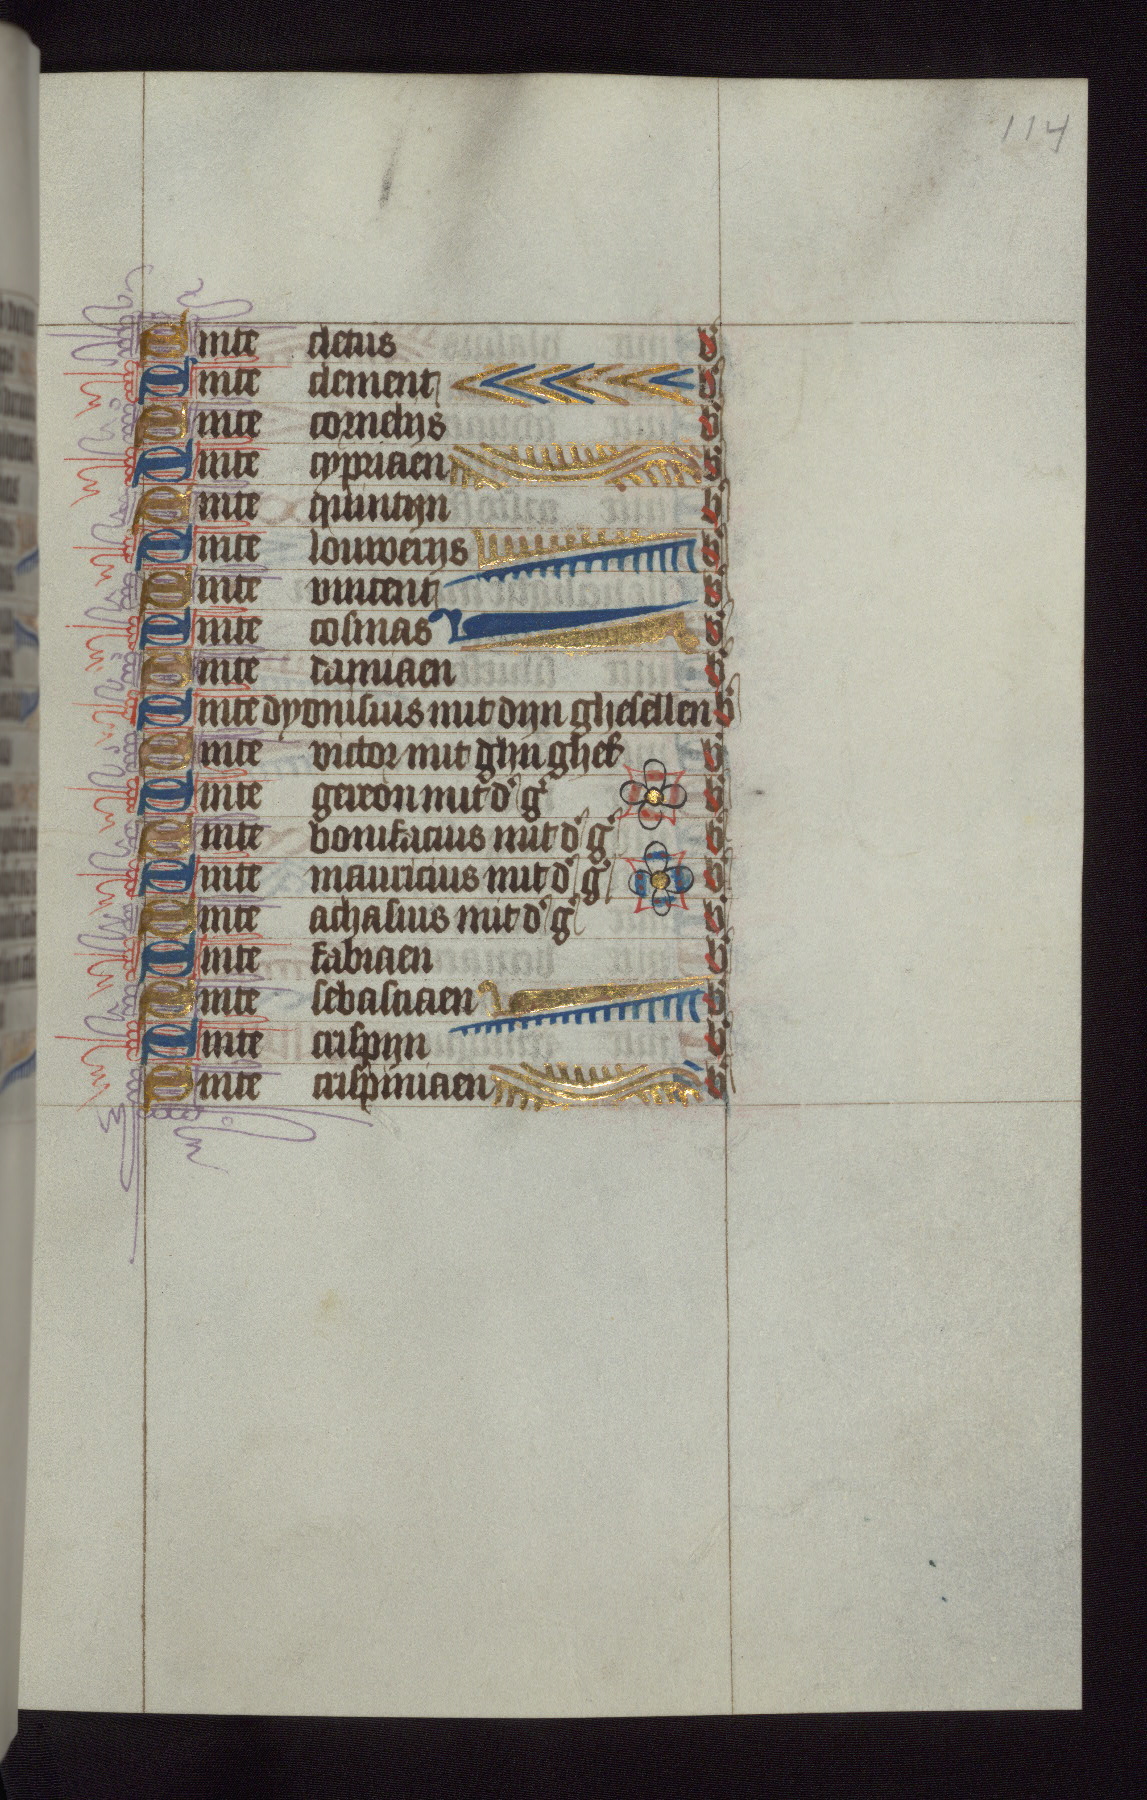 114
Sinte cletus b
Sinte clement b
Sinte cornelijs b
Sinte cypriaen b
Sinte quintijn b
Sinte louwerijs b
Sinte vincent b
Sinte cosmas b
Sinte damiaen b
Sinte dyonisius mit dijn ghesellen b
Sinte victor mit zijn ghes b
Sinte gereon mit d' g' b
Sinte bonifacius mit d' g' b
Sinte mauricius mit d' g' b
Sinte achasius mit d' g' b
Sinte fabiaen b
Sinte sebastiaen b
Sinte crispijn b
Sinte crispiniaen b